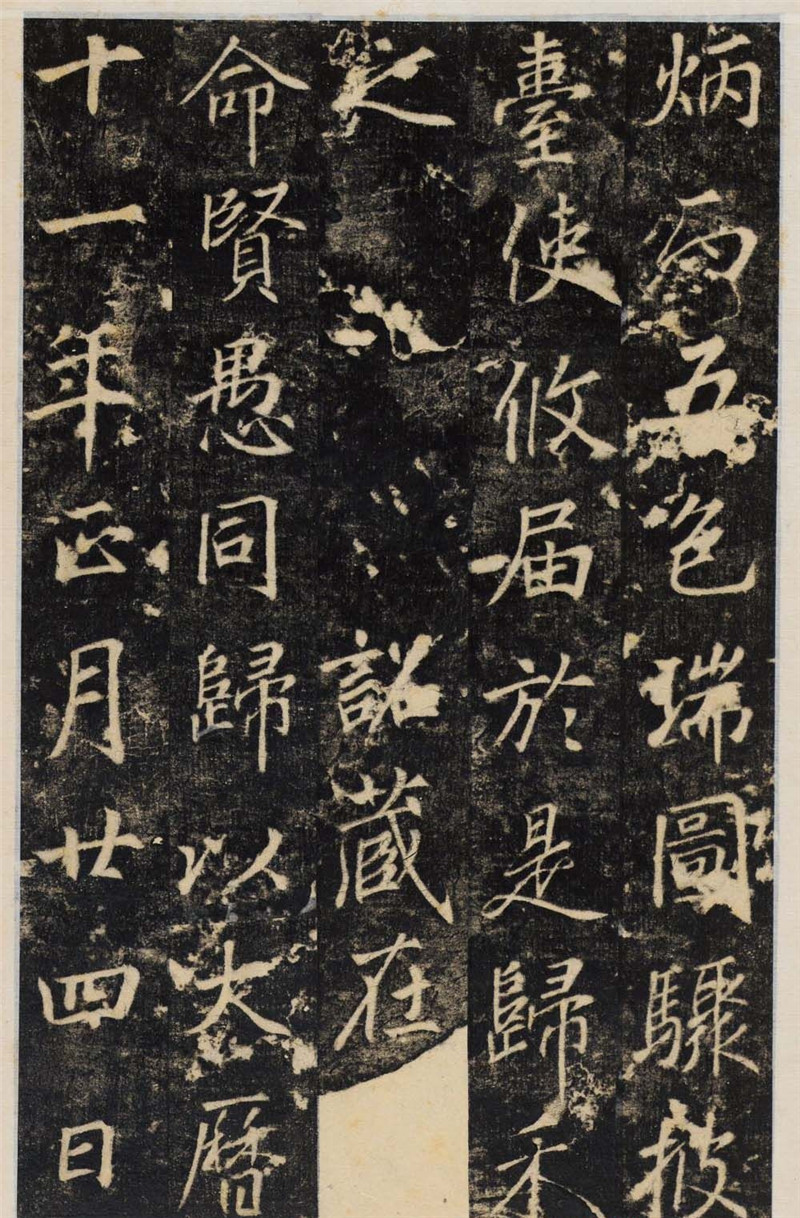 炳而五色瑞圖驟披
臺使攸届於是歸禾
之詔藏在
命賢愚同歸以大曆
十一年正月廿四日